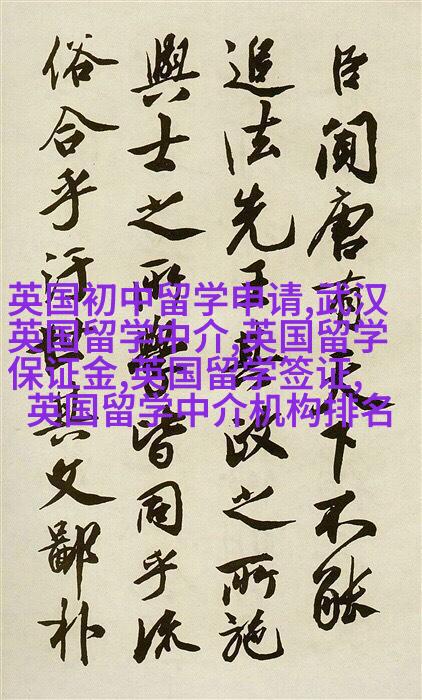 臣聞唐有天下不能
追法先王善政之所施
與士之所學皆同乎流
俗合乎汙世其文鄙朴
英国初中留学申请,武汉
英国留学中介,英国留学
保证金,英国留学签证,
英国留学中介机构排名